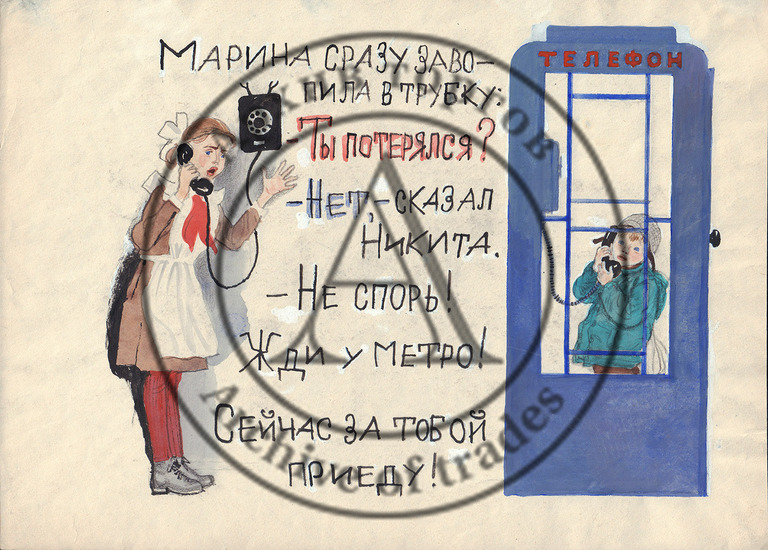 Марина сразу заво-
пила в трубку:
-Ты потерялся?
-Нет,-сказал
Никита.
-Не спорь!
Жди у метро!
Сейчас за тобой
приеду!
ТЕЛЕФОН
Archive of trades